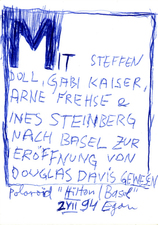 MIT STEFFEN
DOLL, GABI KAISER,
ARNE FREHSE &
INES STEINBERG
NACH BASEL ZUR
ERÖFFNUNG VON
DOUGLAS DAVIS GEWESEN
polaroid "Hilton/Basel"
2 VII 94 Egon